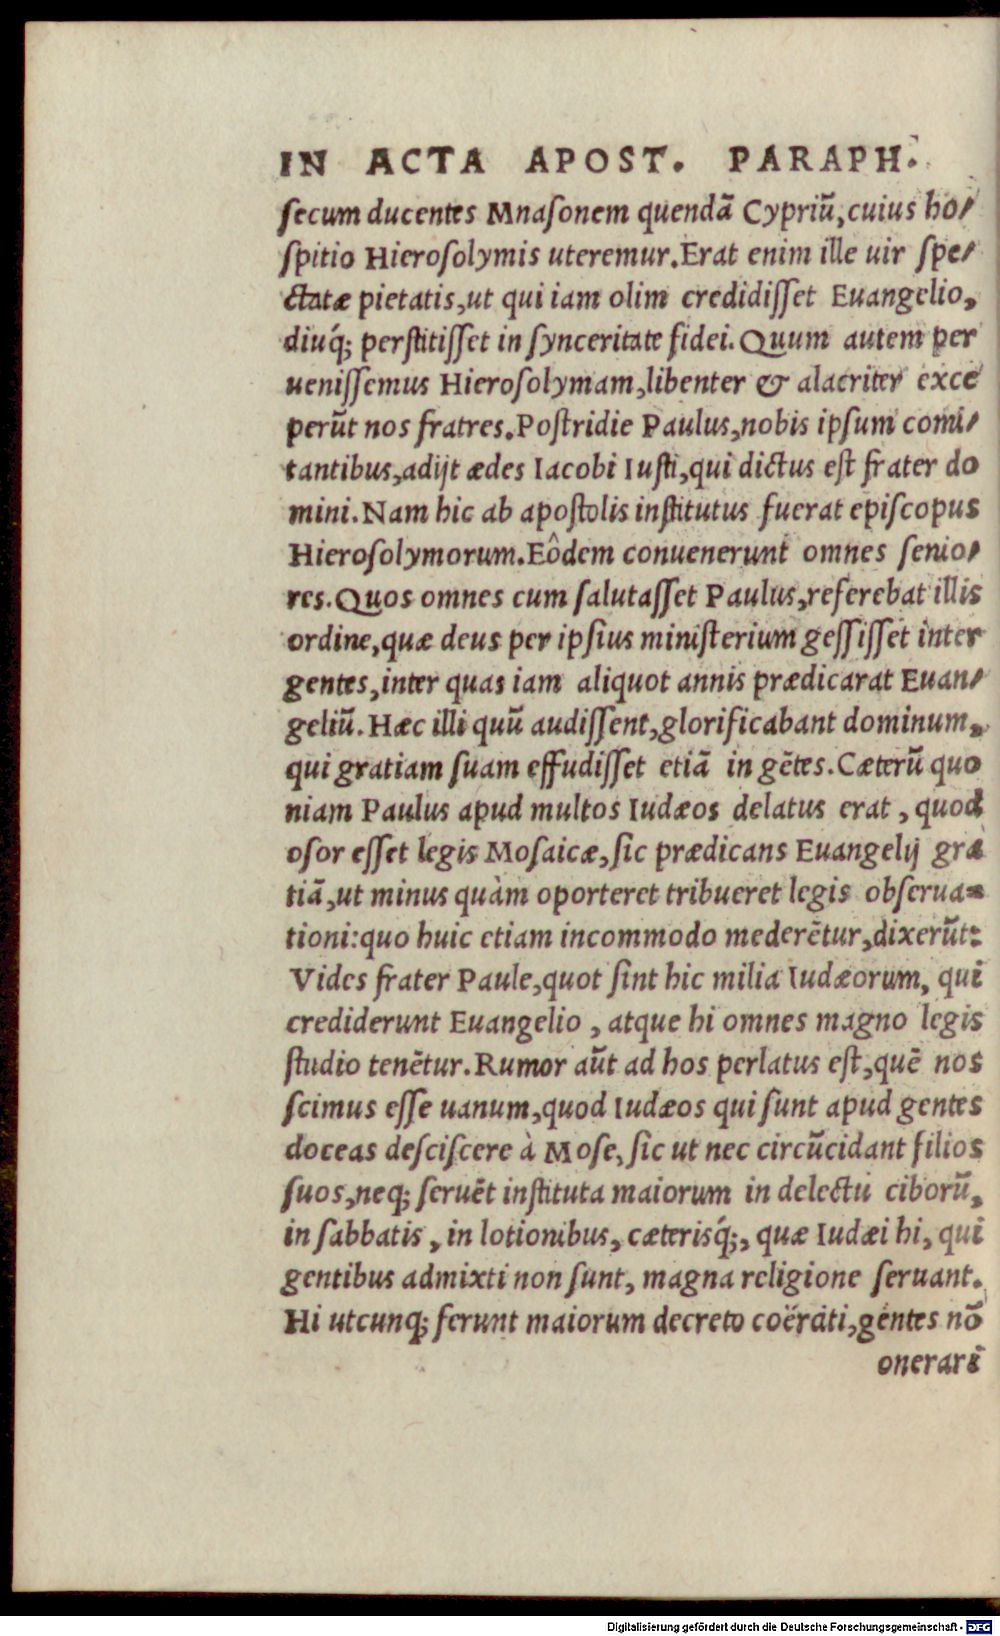 IN ACTA APOST. PARAPH.
ſecum ducentes Mnaſonem quendã Cypriũ, cuius ho/
ſpitio Hieroſolymis uteremur. Erat enim ille uir ſpe/
ctatæ pietatis, ut qui iam olim credidiſſet Euangelio,
diuq́; perſtitiſſet in ſynceritate fidei. Quum autem per
ueniſſemus Hieroſolymam, libenter & alacriter exce
perũt nos fratres. Poſtridie Paulus, nobis ipſum comi/
tantibus, adijt ædes Iacobi Iuſti, qui dictus eſt frater do
mini. Nam hic ab apoſtolis inſtitutus fuerat epiſcopus
Hieroſolymorum. Eôdem conuenerunt omnes ſenio/
res. Quos omnes cum ſalutaſſet Paulus, referebat illis
ordine, quæ deus per ipſius miniſterium geſſiſſet inter
gentes, inter quas iam aliquot annis prædicarat Euan/
geliũ. Hæc illi quũ audiſſent, glorificabant dominum,
qui gratiam ſuam effudiſſet etiã in gẽtes. Cæterũ quo
niam Paulus apud multos Iudæos delatus erat, quod
oſor eſſet legis Moſaicæ, ſic prædicans Euangelij gra
tiã, ut minus quàm oporteret tribueret legis obſerua=
tioni: quo huic etiam incommodo mederẽtur, dixerũt:
Vides frater Paule, quot ſint hic milia Iudæorum, qui
crediderunt Euangelio, atque hi omnes magno legis
ſtudio tenẽtur. Rumor aũt ad hos perlatus eſt, quẽ nos
ſcimus eſſe uanum, quod Iudæos qui ſunt apud gentes
doceas deſciſcere à Moſe, ſic ut nec circũcidant filios
ſuos, neq; ſeruẽt inſtituta maiorum in delectu ciborũ,
in ſabbatis, in lotionibus, cæterisq́;, quæ Iudæi hi, qui
gentibus admixti non ſunt, magna religione ſeruant.
Hi utcunq; ferunt maiorum decreto coërciti, gentes nõ
onerari
Digitalisierung gefördert durch die Deutsche Forschungsgemeinschaft - DFG